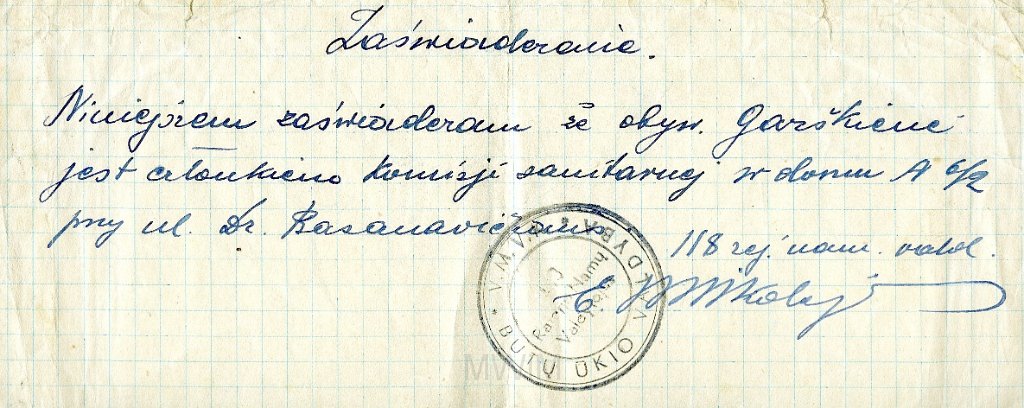 Zaświadczenie.
Niniejszem zaświadczam że obyw. Garškiene
jest członkiem Komisji sanitarnej w domu № 6/2
przy ul. Dr. Basanavičiaus
118 rej. nam. vald.
V.M.V.K. BUTŲ ŪKIO VALDYBA
Namų